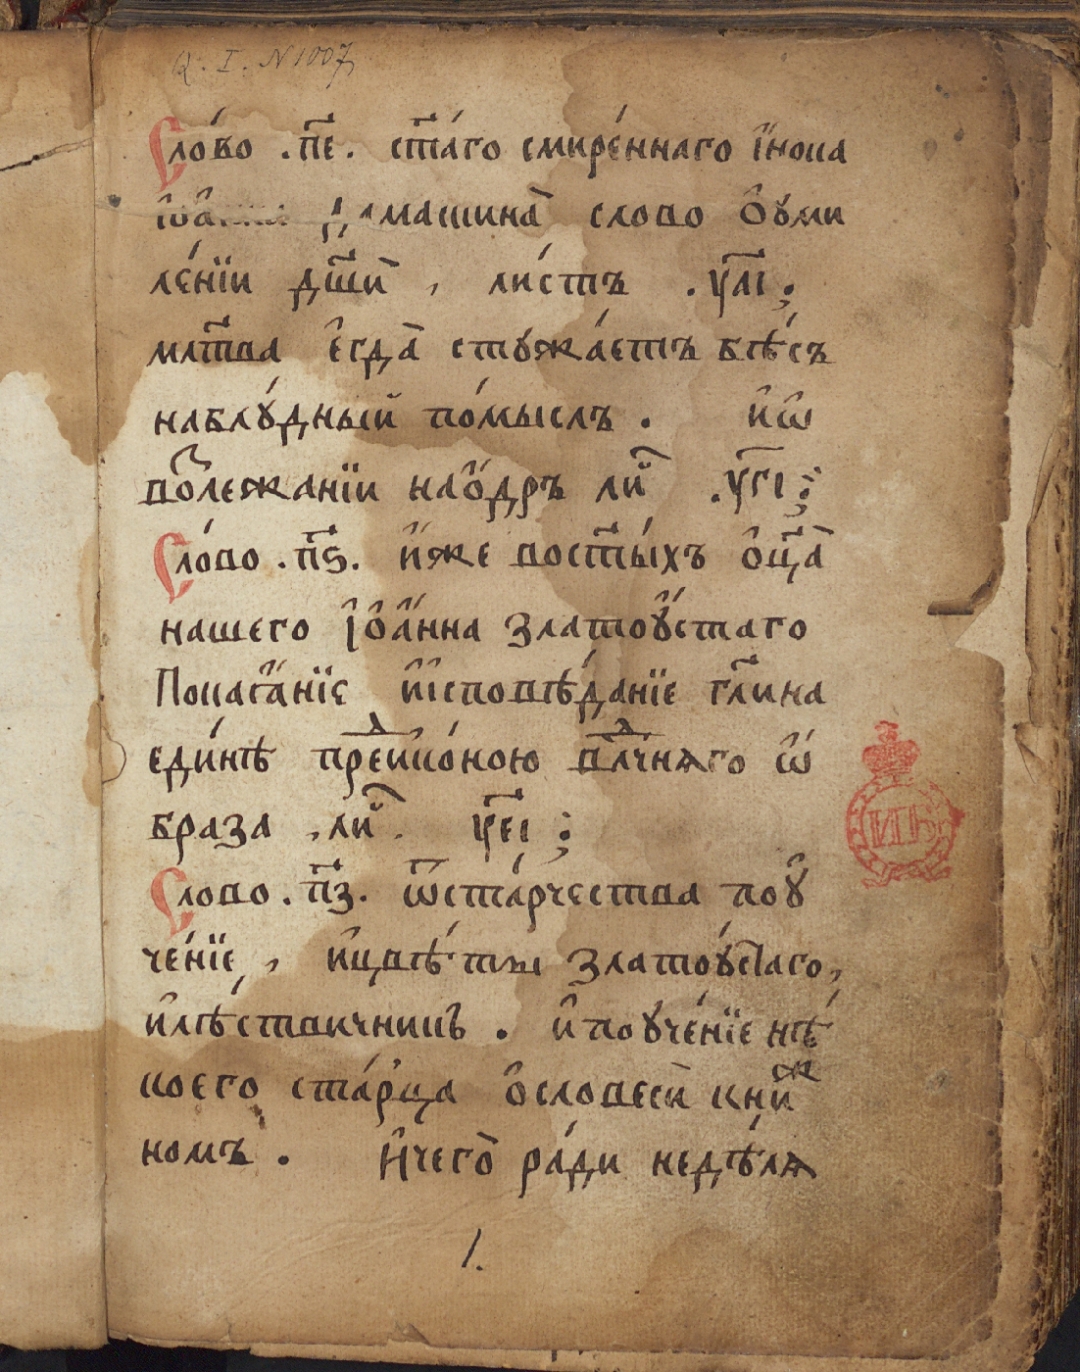 Q. I. N 1007
Сло́во .п҃е. ст҃а́го смире́ннаго і҆́нока
дамаскина̀ слово ѡ҆уми
ле́нїи дш҃ѝ, ли́стъ .у҃аі;
мл҃тва є҆гда̀ стужа́етъ бѣ́съ
наблу́дный по́мыслъ . и҆ѡ҆
наѻ҆́дръ ли҃ .у҃гі;
Сло́во .п҃ѕ. и҆́же вост҃ы́хъ ѻ҆ц҃а̀
нашего і҆ѻ҆а́нна златоу́стаго
Покаѧ́нїе и҆исповѣ́данїе гл҃ина
еди́нѣ преи҆ко́ною вл҃чнѧго ѡ҆́
браза , ли҃. у҃еі ;
Слово .п҃з. ѿста́рчества поу҆
че́нїе , и҆цвѣ́ты златоу́стаго,
и҆лѣ́ствичникъ . и҆поуче́нїе нѣ́
коего ста́рца ѻ҆словесѝ кни́ж
номъ . И҆чего̀ ра́ди недѣ́лѧ
1.
ИБ